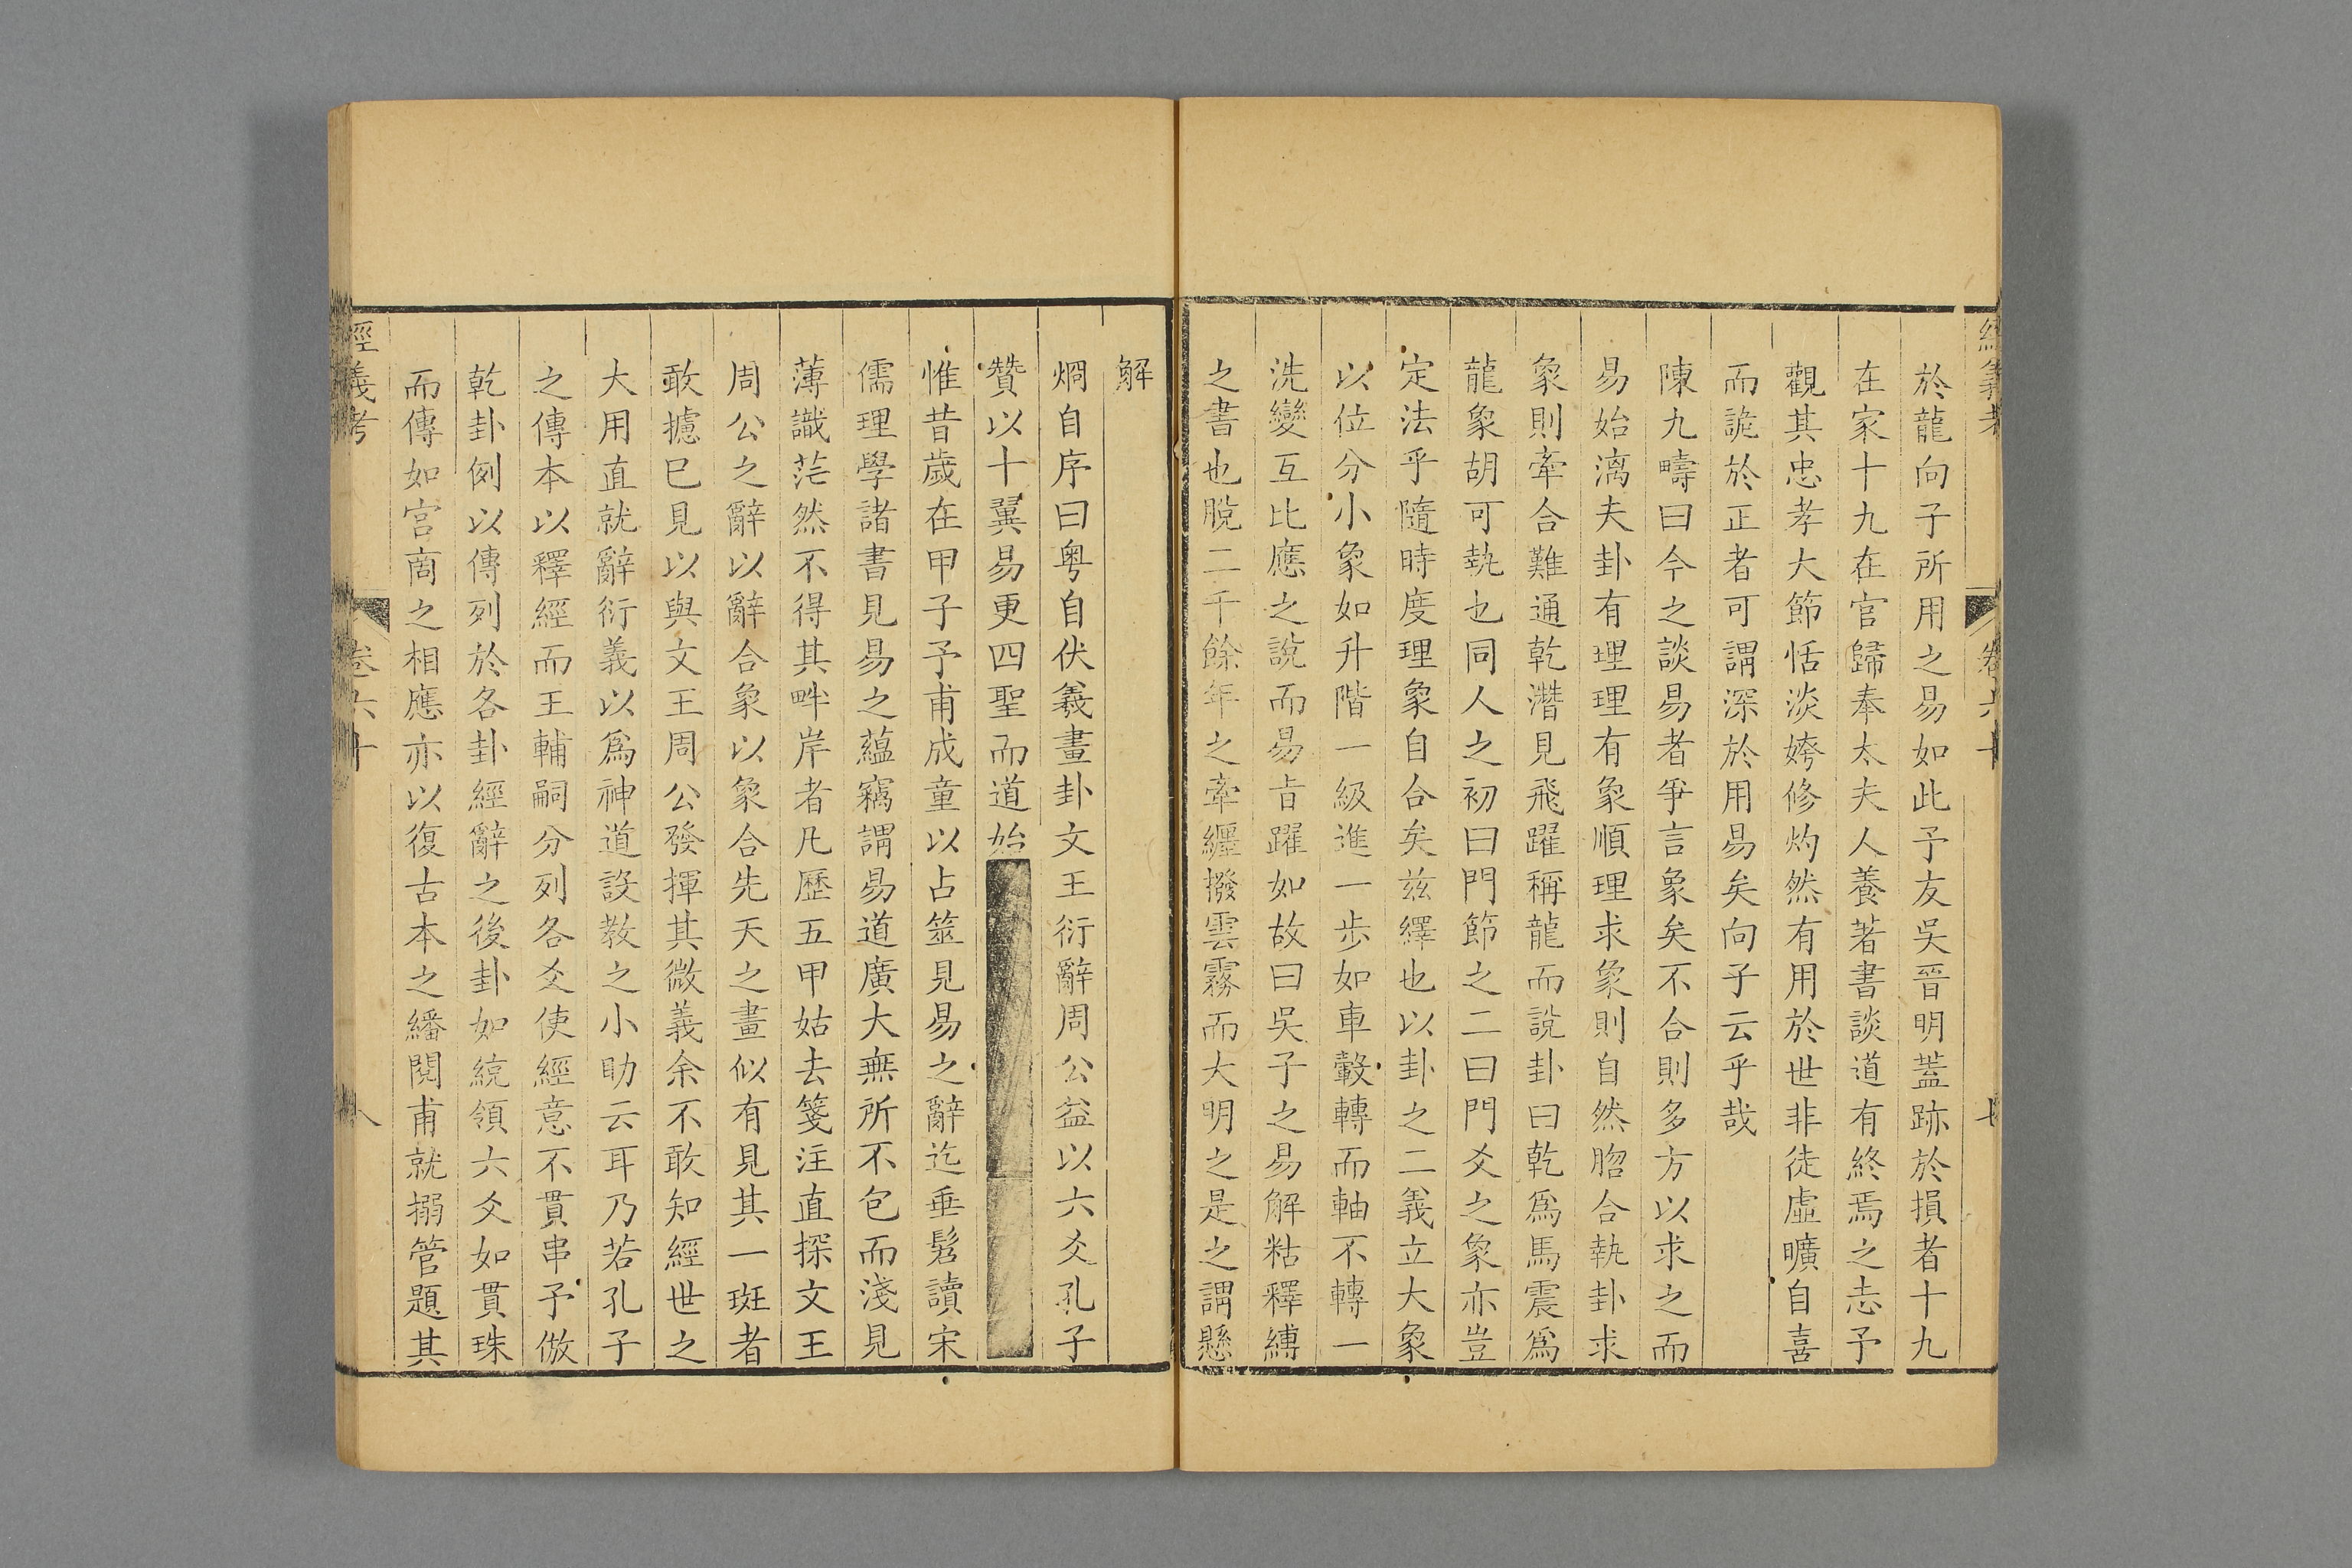 經義考 卷六十 七
於龍向子所用之易如此予友吳晉明葢跡於損者十九
在家十九在官歸奉太夫人養著書談道有終焉之志予
觀其忠孝大節恬淡姱修灼然有用於世非徒虛曠自喜
而詭於正者可謂深於用易矣向子云乎哉
陳九疇曰今之談易者爭言象矣不合則多方以求之而
易始漓夫卦有理理有象順理求象則自然脗合執卦求
象則牽合難通乾潛見飛躍稱龍而說卦曰乾爲馬震爲
龍象胡可執也同人之初曰門節之二曰門爻之象亦豈
定法乎隨時度理象自合矣茲繹也以卦之二義立大象
以位分小象如升階一級進一步如車轂轉而軸不轉一
洗變互比應之說而易旨躍如故曰吳子之易解粘釋縛
之書也脫二千餘年之牽纏撥雲霧而大明之是之謂懸
解
烱自序曰粵自伏羲畫卦文王衍辭周公益以六爻孔子
贊以十翼易更四聖而道始
惟昔歲在甲子予甫成童以占筮見易之辭迄垂髫讀宋
儒理學諸書見易之蘊竊謂易道廣大無所不包而淺見
薄識茫然不得其畔岸者凡歷五甲姑去箋注直探文王
周公之辭以辭合象以象合先天之畫似有見其一斑者
敢攄已見以與文王周公發揮其微義余不敢知經世之
大用直就辭衍義以爲神道設教之小助云耳乃若孔子
之傳本以釋經而王輔嗣分列各爻使經意不貫串予倣
乾卦例以傳列於各卦經辭之後卦如綂領六爻如貫珠
而傳如宮商之相應亦以復古本之繙閱甫就搦管題其
經義考 卷六十 八